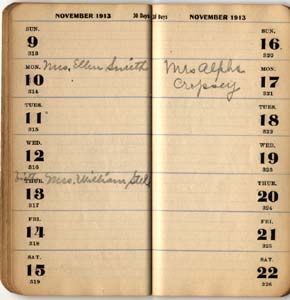 NOVEMBER 1913 30 Days
SUN.
9
313
MON.
10
314
Mrs. Ellen Smith
TUES.
11
315
WED.
12
316
THUR.
13
317
Mrs. William
FRI.
14
318
SAT.
15
319
NOVEMBER 1913
SUN.
16
320
MON.
17
321
Mrs Alpha
Cropsey
TUES.
18
322
WED.
19
323
THUR.
20
324
FRI.
21
325
SAT.
22
326